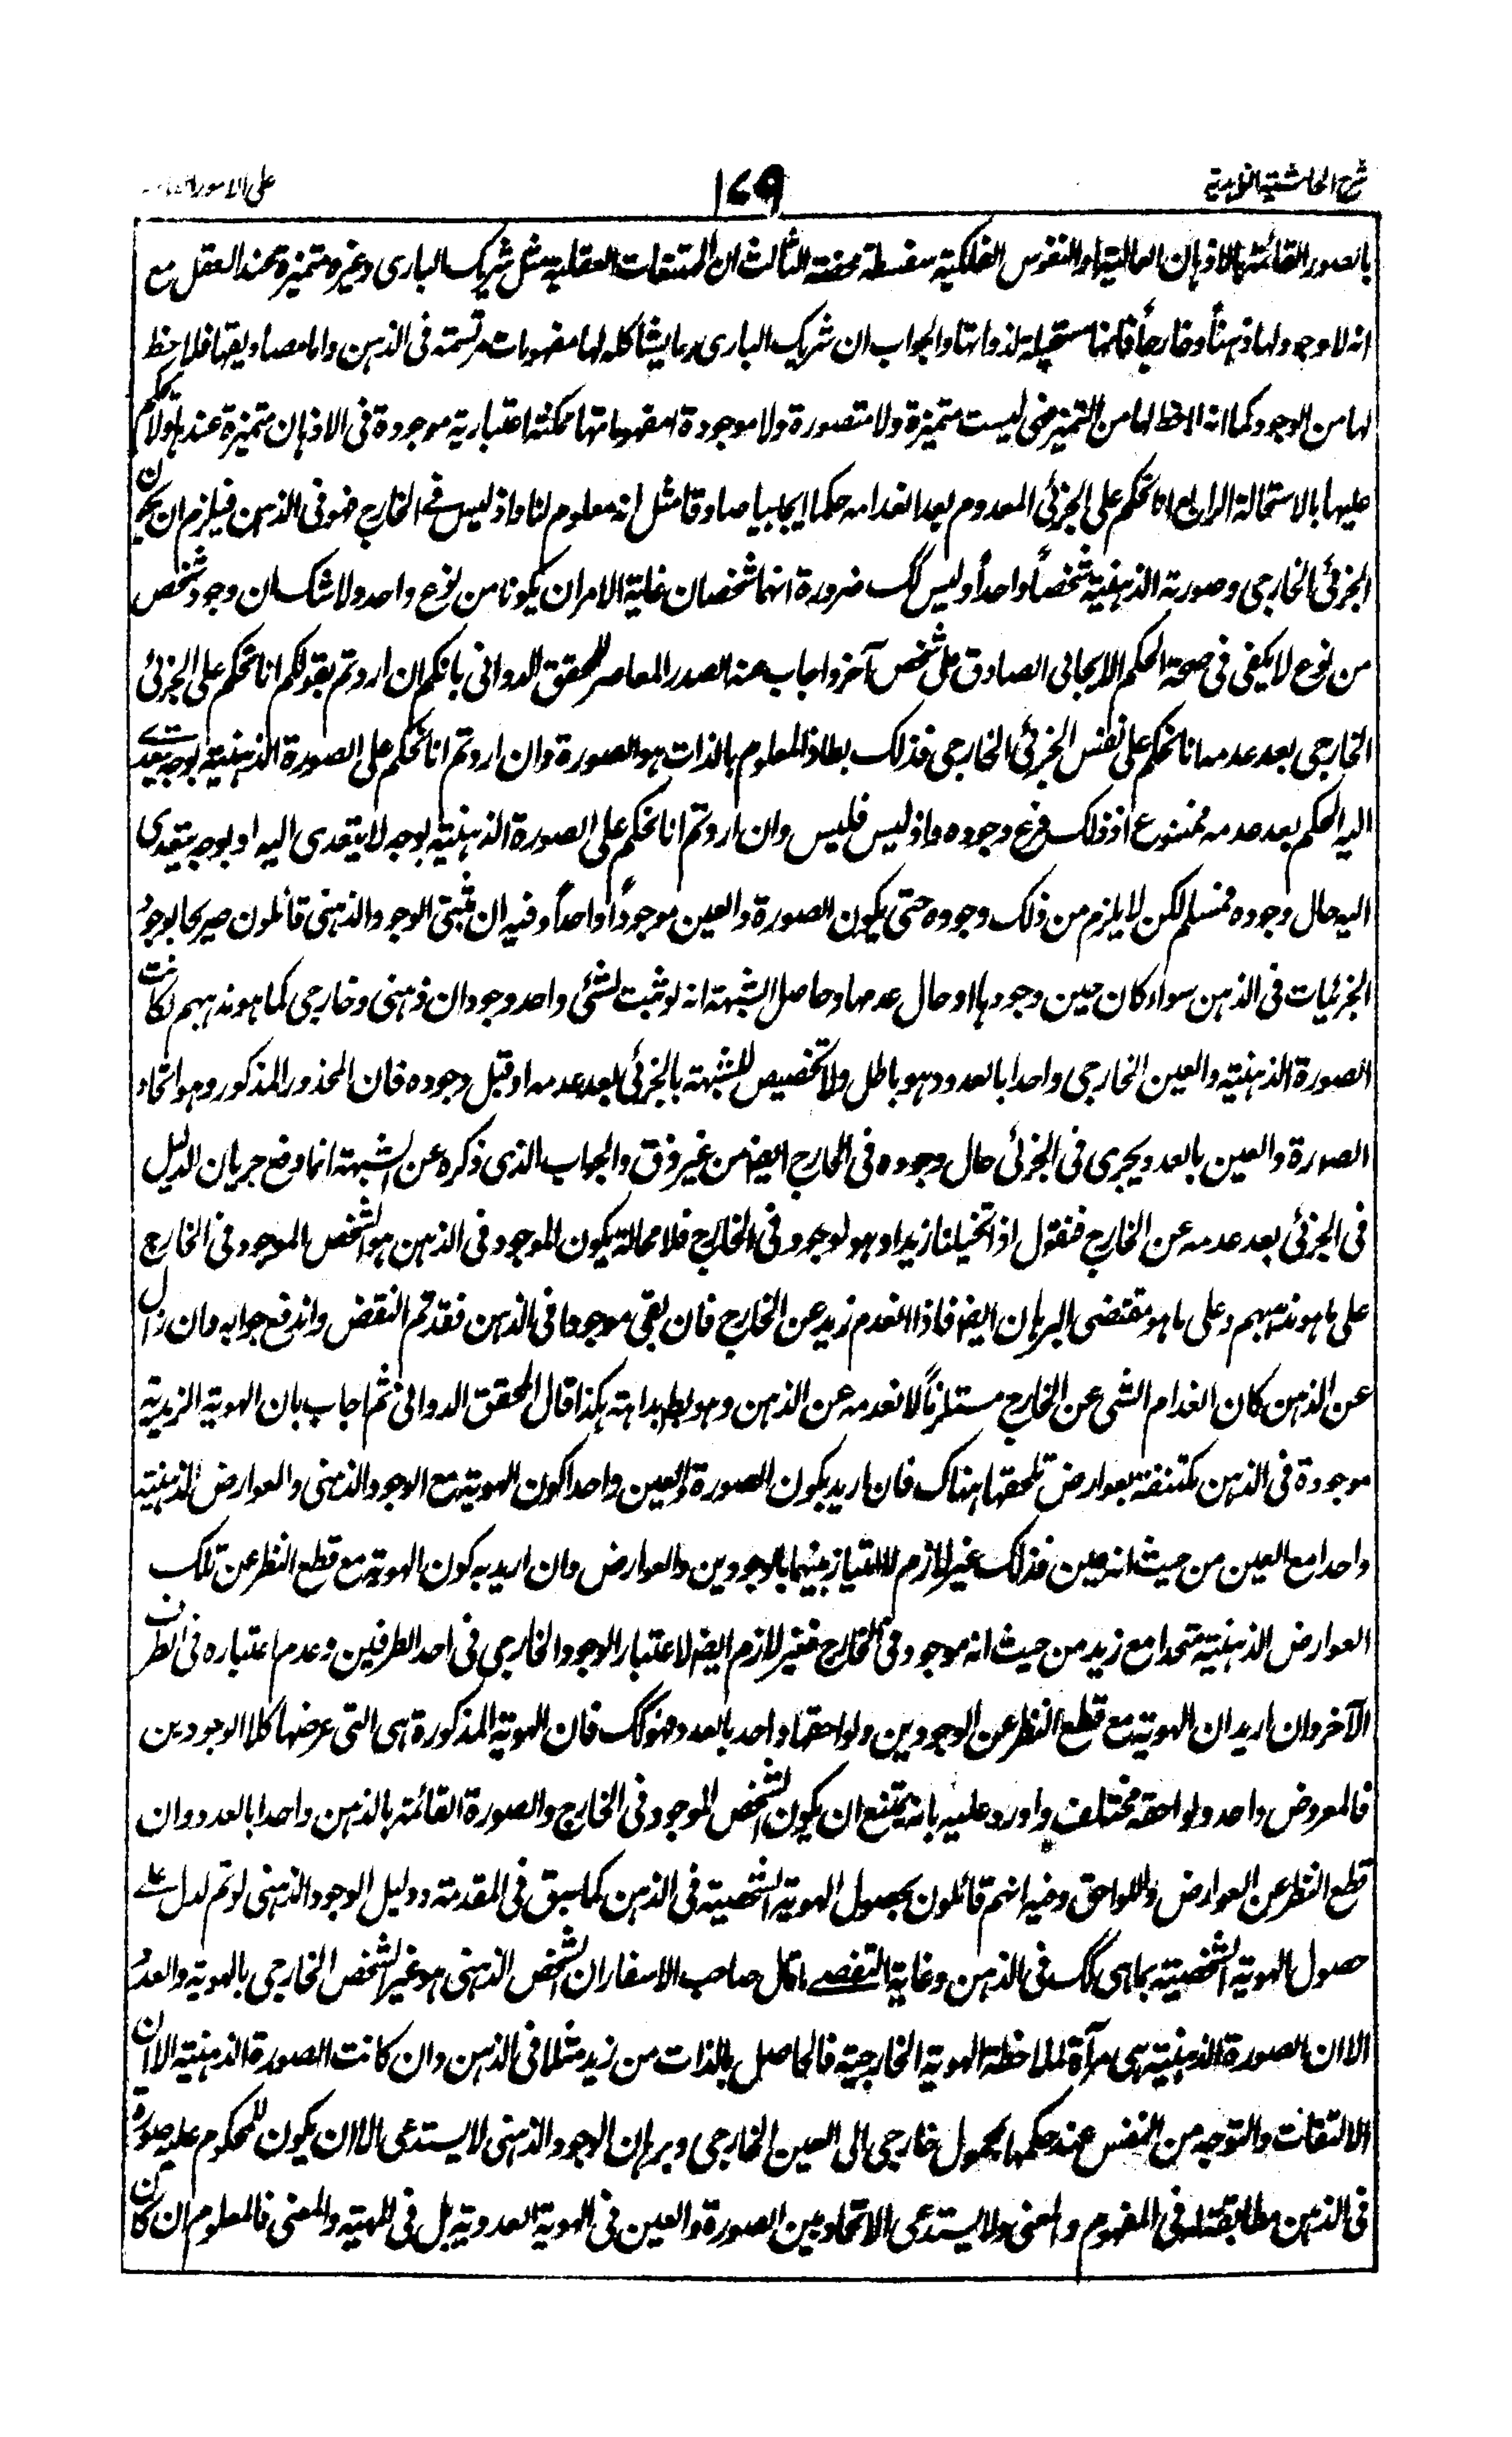 شرح الحاشية الزاهدية ١٧٩ على الامور العامة
بالصور القائمة بالاذهان العالية او النفوس الفلكية سفسطة محضة الثالث ان الممتنعات العقلية مثل شريك البارى وغيره متميزة عند العقل مع
انه لا وجود لها ذهناً وخارجاً فانها مستحيلة لذواتها والجواب ان شريك البارى وما يشاكله لها مفهومات مرتسمة فى الذهن واما مصاديقها فلا حظ
لها من الوجود كما انه لا حظ لها من التميز فهى ليست متميزة ولا متصورة ولا موجودة مفهوماتها ممكنة اعتبارية موجودة فى الاذهان متميزة عندها ولا يحكم
عليها بالاستحالة الرابع انا نحكم على الجزئى المعدوم بعد انعدامه حكما ايجابيا صادقا مثل انه معلوم لنا واذ ليس فى الخارج فهو فى الذهن فيلزم ان يكون
الجزئى الخارجى وصورته الذهنية شخصاً واحداً وليس كك ضرورة انهما شخصان غاية الامر ان يكونا من نوع واحد ولا شك ان وجود شخص
من نوع لا يكفى فى صحة الحكم الايجابى الصادق على شخص آخر واجاب عنه الصدر المعاصر للمحقق الدوانى بانكم ان اردتم بقولكم انا نحكم على الجزئى
الخارجى بعد عدمه انا نحكم على نفس الجزئى الخارجى فذلك بط اذ المعلوم بالذات هو الصورة وان اردتم انا نحكم على الصورة الذهنية بوجه يتعدى
اليه الحكم بعد عدمه فممنوع اذ ذلك فرع وجوده واذ ليس فليس وان اردتم انا نحكم على الصورة الذهنية بوجه لا يتعدى اليه او بوجه يتعدى
اليه حال وجوده فمسلم لكن لا يلزم من ذلك وجوده حتى يكون الصورة والعين موجوداً واحداً وفيه ان مثبتى الوجود الذهنى قائلون صريحا بوجود
الجزئيات فى الذهن سواء كان حين وجودها او حال عدمها وحاصل الشبهة انه لو ثبت لشئ واحد وجودان ذهنى وخارجى كما هو مذهبهم لكانت
الصورة الذهنية والعين الخارجى واحدا بالعدد وهو باطل ولا تخصيص للشبهة بالجزئى بعد عدمه او قبل وجوده فان المحذور المذكور وهو اتحاد
الصورة والعين بالعدد يجرى فى الجزئى حال وجوده فى الخارج ايضا من غير فرق والجواب الذى ذكره عن الشبهة انما دفع جريان الدليل
فى الجزئى بعد عدمه عن الخارج فنقول اذا تخيلنا زيدا وهو موجود فى الخارج فلا محالة يكون الموجود فى الذهن هو الشخص الموجود فى الخارج
على ما هو مذهبهم وعلى ما هو مقتضى البرهان ايضا فاذا انعدم زيد عن الخارج فان بقى موجودا فى الذهن فقد تم النقض واندفع جوابه وان زال
عن الذهن كان انعدام الشئ عن الخارج مستلزماً لانعدمه عن الذهن وهو بط بداهة هكذا قال المحقق الدوانى ثم اجاب بان الهوية الزيدية
موجودة فى الذهن مكتنفة بعوارض تلحقها هناك فان اريد بكون الصورة والعين واحدا كون الهوية مع الوجود الذهنى والعوارض الذهنية
واحدا مع العين من حيث انه عين فذلك غير لازم للامتياز بينهما بالوجودين والعوارض وان اريد به كون الهوية مع قطع النظر عن تلك
العوارض الذهنية متحدا مع زيد من حيث انه موجود فى الخارج فغير لازم ايضا لاعتبار الوجود الخارجى فى احد الطرفين وعدم اعتباره فى الطرف
الآخر وان اريد ان الهوية مع قطع النظر عن الوجودين ولواحقها واحد بالعدد فهو كك فان الهوية المذكورة هى التى عرضها كلا الوجودين
فالمعروض واحد ولواحقه مختلف واورد عليه بانه يمتنع ان يكون الشخص الموجود فى الخارج والصورة القائمة بالذهن واحدا بالعدد وان
قطع النظر عن العوارض واللواحق وفيه انهم قائلون بحصول الهوية الشخصية فى الذهن كما سبق فى المقدمة ودليل الوجود الذهنى لو تم لدل على
حصول الهوية الشخصية بما هى كك فى الذهن وغاية التفصى ما قال صاحب الاسفار ان الشخص الذهنى هو غير الشخص الخارجى بالهوية والعدد
الا ان الصورة الذهنية هى مرآة لملاحظة الهوية الخارجية فالحاصل بالذات من زيد مثلا فى الذهن وان كانت الصورة الذهنية الا ان
الالتفات والتوجه من النفس عند حكمها بمحمول خارجى الى العين الخارجى وبرهان الوجود الذهنى لا يستدعى الا ان يكون للمحكوم عليه صورة
فى الذهن مطابقة له فى المفهوم والمعنى ولا يستدعى الاتحاد بين الصورة والعين فى الهوية العددية بل فى المهية والمعنى فالمعلوم ان كان